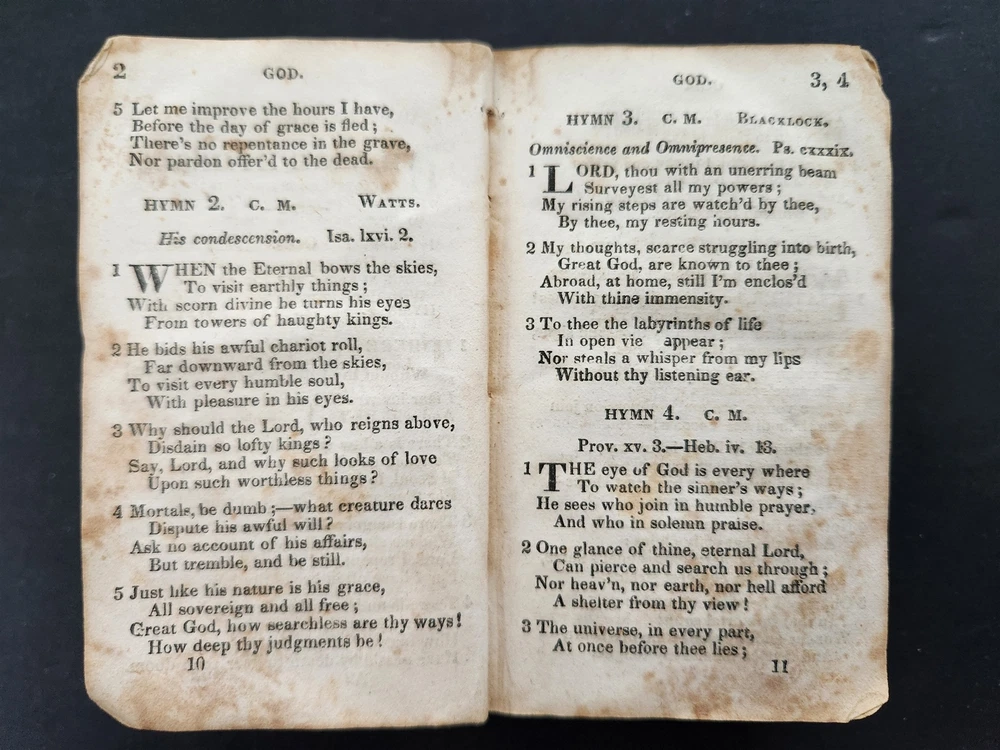 2 GOD.
5 Let me improve the hours I have,
Before the day of grace is fled;
There's no repentance in the grave,
Nor pardon offer'd to the dead.
HYMN 2. C. M. WATTS.
His condescension. Isa. lxvi. 2.
1 WHEN the Eternal bows the skies,
To visit earthly things;
With scorn divine he turns his eyes
From towers of haughty kings.
2 He bids his awful chariot roll,
Far downward from the skies,
To visit every humble soul,
With pleasure in his eyes.
3 Why should the Lord, who reigns above,
Disdain so lofty kings?
Say, Lord, and why such looks of love
Upon such worthless things?
4 Mortals, be dumb;—what creature dares
Dispute his awful will?
Ask no account of his affairs,
But tremble, and be still.
5 Just like his nature is his grace,
All sovereign and all free;
Great God, how searchless are thy ways!
How deep thy judgments be!
10
GOD. 3, 4
HYMN 3. C. M. BLACKLOCK.
Omniscience and Omnipresence. Ps. cxxxix.
1 LORD, thou with an unerring beam
Surveyest all my powers;
My rising steps are watch'd by thee,
By thee, my resting hours.
2 My thoughts, scarce struggling into birth,
Great God, are known to thee;
Abroad, at home, still I'm enclos'd
With thine immensity.
3 To thee the labyrinths of life
In open vie appear;
Nor steals a whisper from my lips
Without thy listening ear.
HYMN 4. C. M.
Prov. xv. 3.—Heb. iv. 13.
1 THE eye of God is every where
To watch the sinner's ways;
He sees who join in humble prayer,
And who in solemn praise.
2 One glance of thine, eternal Lord,
Can pierce and search us through;
Nor heav'n, nor earth, nor hell afford
A shelter from thy view!
3 The universe, in every part,
At once before thee lies;
11